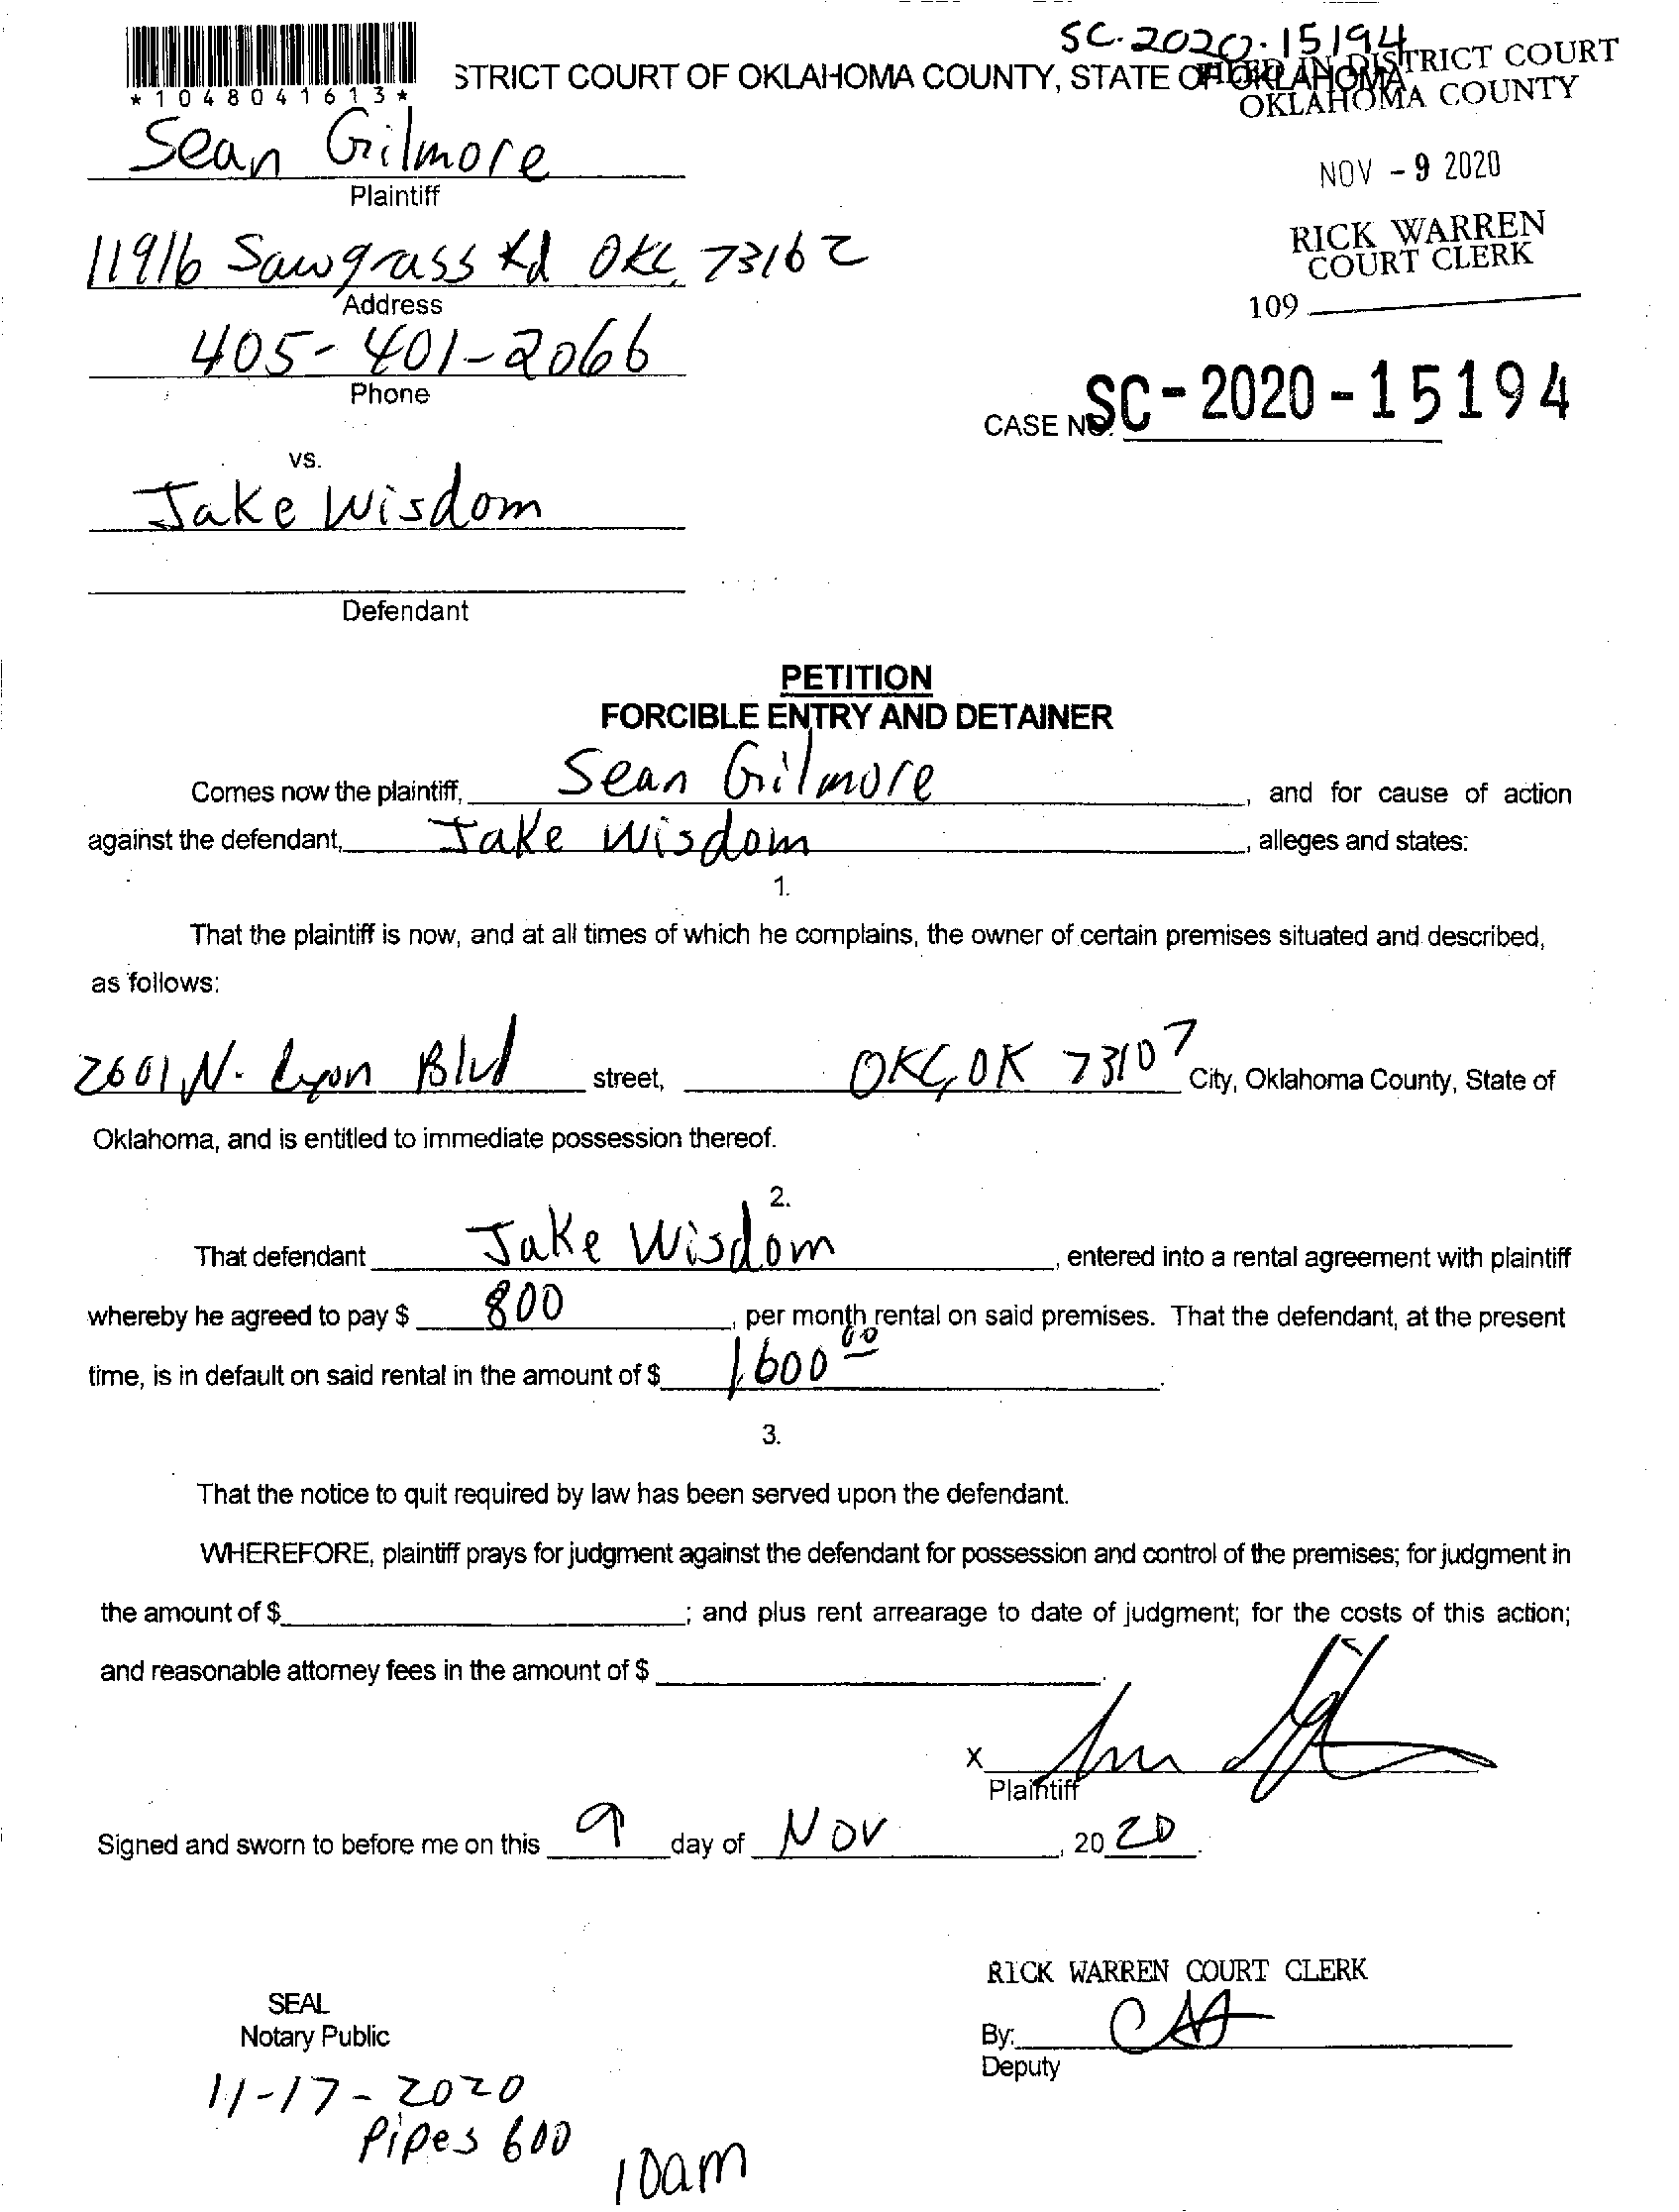 SC-2020-15194
STRICT COURT OF OKLAHOMA COUNTY, STATE OF OKLAHOMA
FILED IN DISTRICT COURT
OKLAHOMA COUNTY
*1048041613*
Sean Gilmore
Plaintiff
NOV - 9 2020
11916 Sawgrass Rd OKC, 73162
Address
RICK WARREN
COURT CLERK
109
405-401-2066
Phone
CASE NO. SC-2020-15194
vs.
Jake Wisdom
Defendant
PETITION
FORCIBLE ENTRY AND DETAINER
Comes now the plaintiff, Sean Gilmore, and for cause of action
against the defendant, Jake Wisdom, alleges and states:
1.
That the plaintiff is now, and at all times of which he complains, the owner of certain premises situated and described,
as follows:
2601 N. Lyon Blvd street, OKC, OK 73107 City, Oklahoma County, State of
Oklahoma, and is entitled to immediate possession thereof.
2.
That defendant Jake Wisdom, entered into a rental agreement with plaintiff
whereby he agreed to pay $ 800, per month rental on said premises. That the defendant, at the present
time, is in default on said rental in the amount of $ 1,600 00.
3.
That the notice to quit required by law has been served upon the defendant.
WHEREFORE, plaintiff prays for judgment against the defendant for possession and control of the premises; for judgment in
the amount of $ ; and plus rent arrearage to date of judgment; for the costs of this action;
and reasonable attorney fees in the amount of $ .
X
Plaintiff
Signed and sworn to before me on this 9 day of Nov, 20 20.
RICK WARREN COURT CLERK
SEAL
Notary Public
By:
Deputy
11-17-2020
Pipes 600
10am